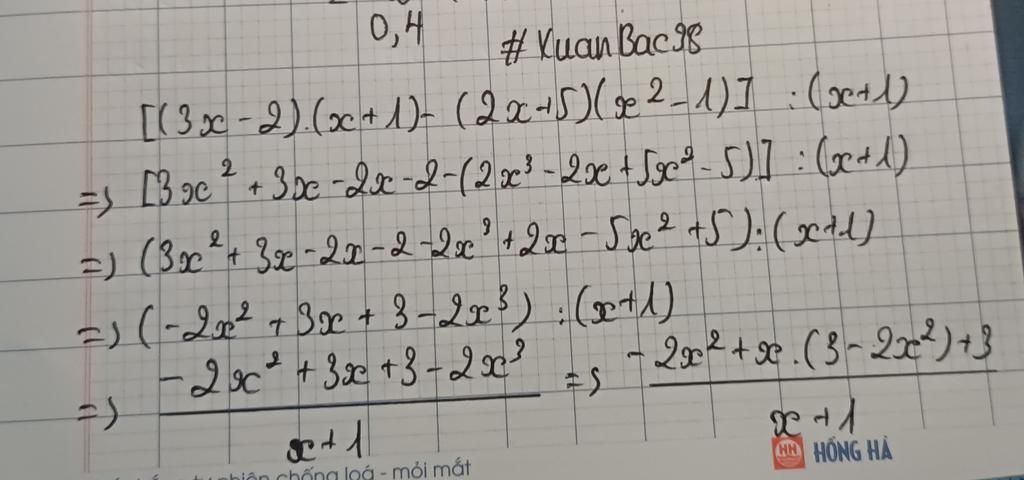 0,4
#XuanBac98
[(3x-2).(x+1)- (2x+5)(x²-1)] :(x+1)
=> [3x² + 3x -2x -2 -(2x³ -2x + 5x² -5)] :(x+1)
=> (3x² + 3x -2x -2 -2x³ +2x -5x² +5):(x+1)
=> (-2x² + 3x + 3 - 2x³) :(x+1)
=> -2x² + 3x + 3 - 2x³ => -2x² + x.(3 - 2x²)+3
x+1 x+1
HH HỒNG HÀ
chống loá - mỏi mắt